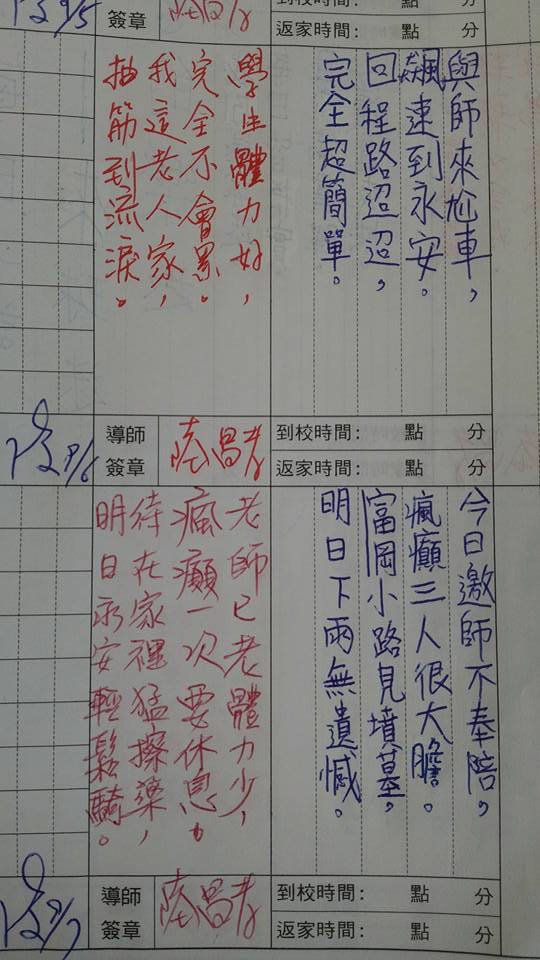 9/5
簽章
到校時間: 點 分
返家時間: 點 分
與師來尬車,
飆速到永安。
回程路迢迢,
完全超簡單。
學生體力好,
完全不會累。
我這老人家,
抽筋到流淚。
9/6
導師
簽章
到校時間: 點 分
返家時間: 點 分
今日邀師不奉陪,
瘋癲三人很大膽。
富岡小路見墳墓,
明日下雨無遺憾。
老師已老體力少,
瘋癲一次要休息。
待在家裡猛擦藥,
明日永安輕鬆騎。
9/7
導師
簽章
到校時間: 點 分
返家時間: 點 分